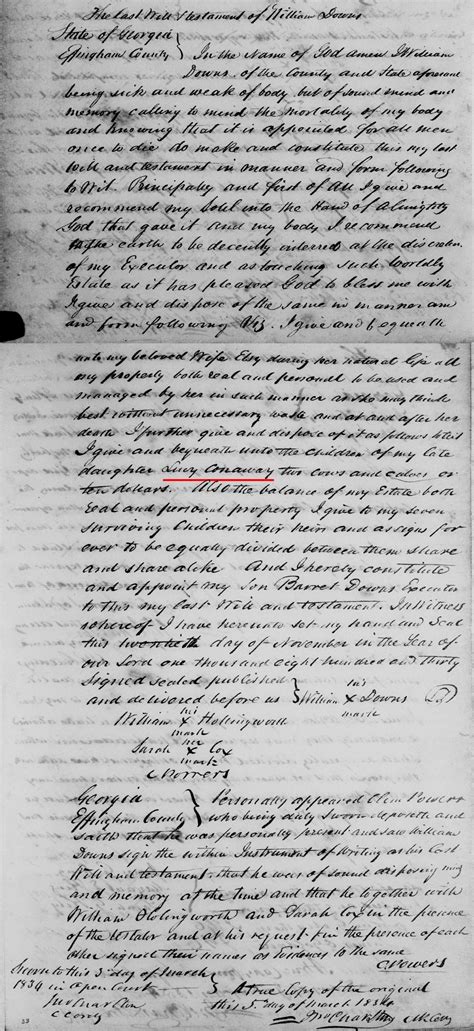 The Last Will & Testament of William Downs
State of Georgia
Effingham County } In the Name of God amen I William
Downs of the County and State aforesaid
being sick and weak of body but of sound mind and
memory calling to mind the mortality of my body
and knowing that it is appointed for all men
once to die do make and constitute this my last
will and testament in manner and form following
to Wit. Principaly and first of all I give and
recommend my Sole into the Hand of Almighty
God that gave it and my body I recommend
to the earth to be decently intered at the discretion
of my Executor and as touching such Worldly
Estate as it has pleased God to bless me with
I give and dispose of the same in manner
and form following Viz. I give and bequeath
unto my beloved Wife Elsy during her natural life all
my property both real and personal to be used and
managed by her in such manner as she may think
best without unnecessary waste and at and after her
death I further give and dispose of it as follows
I give and bequeath unto the children of my late
daughter Livy Conaway two cows and calves or
ten dollars. Also the balance of my Estate both
real and personal property I give to my seven
surviving Children their heirs and assigns for
ever to be equally divided between them share
and share alike And I hereby constitute
and appoint my Son Barret Downs Executor
to this my last Will and testament. In Witness
whereof I have hereunto set my hand and Seal
this twentieth day of November in the Year of
our Lord one thousand eight hundred and thirty
Signed sealed published
and delivered before us } William his X mark Downs
William his X mark Hollingworth
Sarah her X mark Cox
C Powers
Georgia
Effingham County } Personally appeared Clem Powers
who being duly sworn deposeth and
saith that he was personally present and saw William
Downs sign the within Instrument of Writing as his Last
Will and testament, that he was of sound disposing mind
and memory at the time and that he together with
William Hollingworth and Sarah Cox in the presence
of the testator and at his request & in the presence of each
other signed their names as witnesses to the same
C Powers
Sworn to this 3d day of March
1834 in open Court
A true Copy of the original
this 5th day of March 1834
33